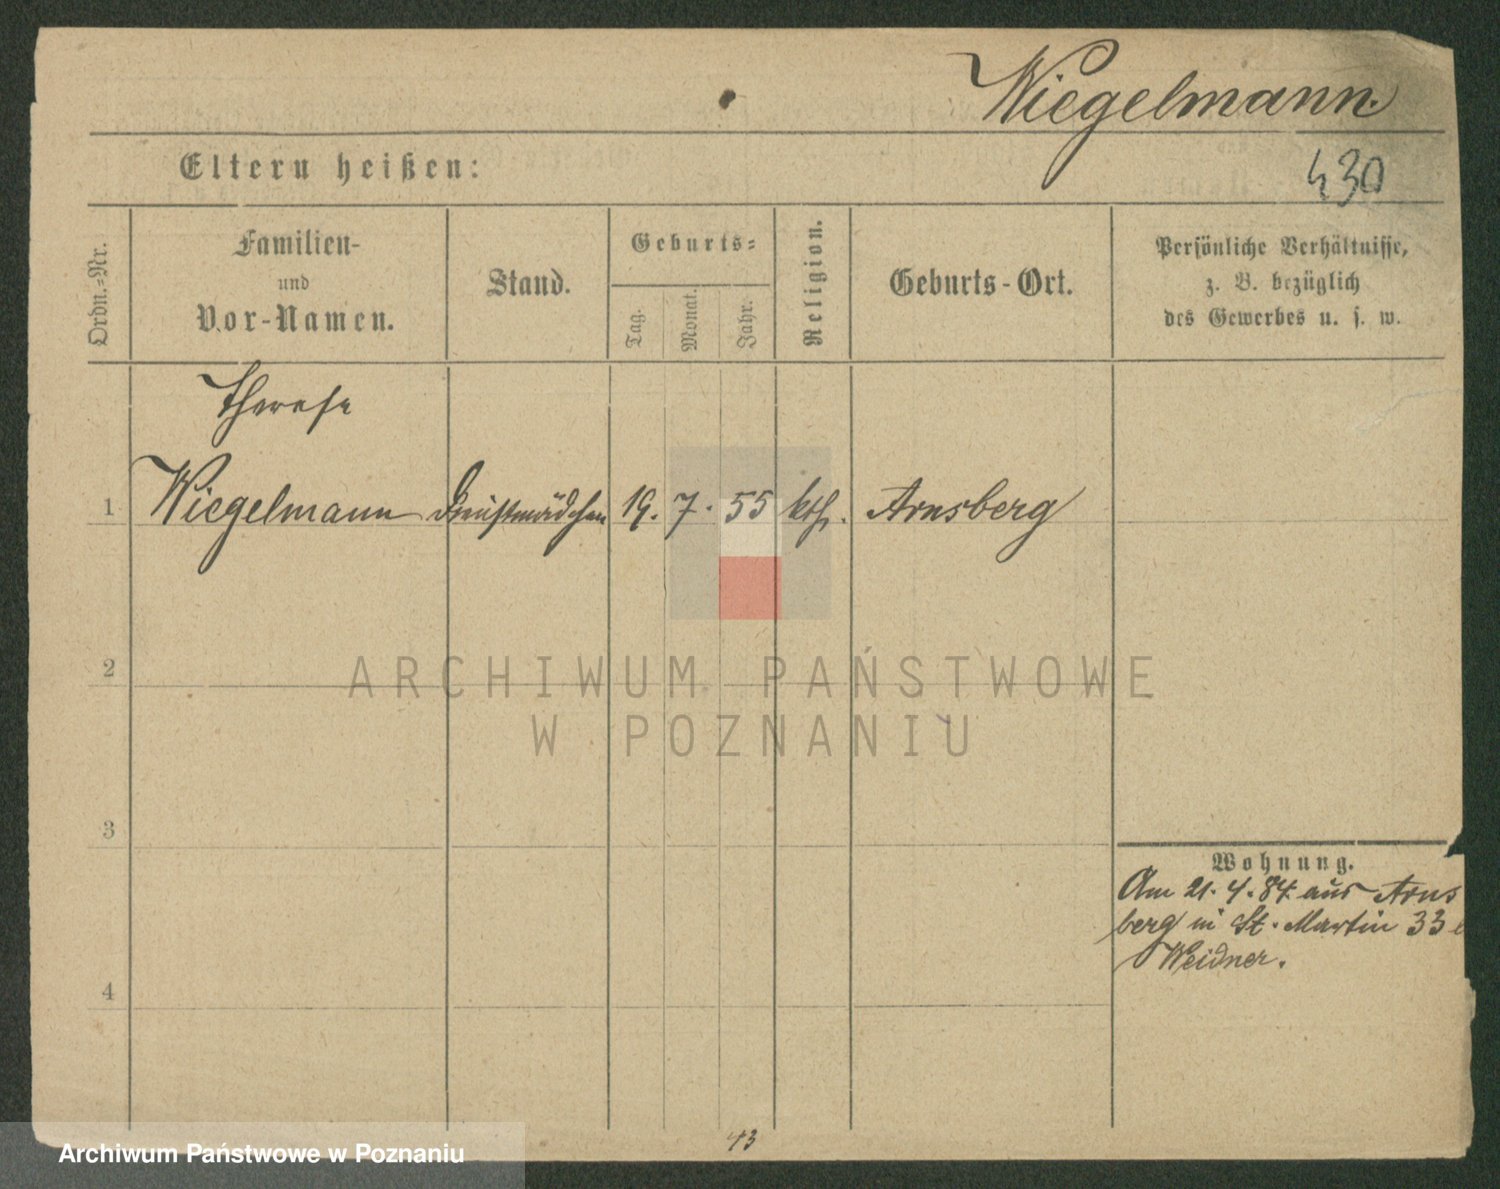 Wiegelmann.
Eltern heißen:
430
Ordn.-Nr.
Familien-
und
Vor-Namen.
Stand.
Geburts-
Tag.
Monat.
Jahr.
Religion.
Geburts-Ort.
Persönliche Verhältnisse,
z. B. bezüglich
des Gewerbes u. s. w.
Therese
1 Wiegelmann Dienstmädchen 19. 7. 55 kth. Arnsberg
2
ARCHIWUM PAŃSTWOWE
W POZNANIU
3
Wohnung.
Am 21. 4. 84 aus Arns
berg in St. Martin 33
Weidner.
4
43
Archiwum Państwowe w Poznaniu